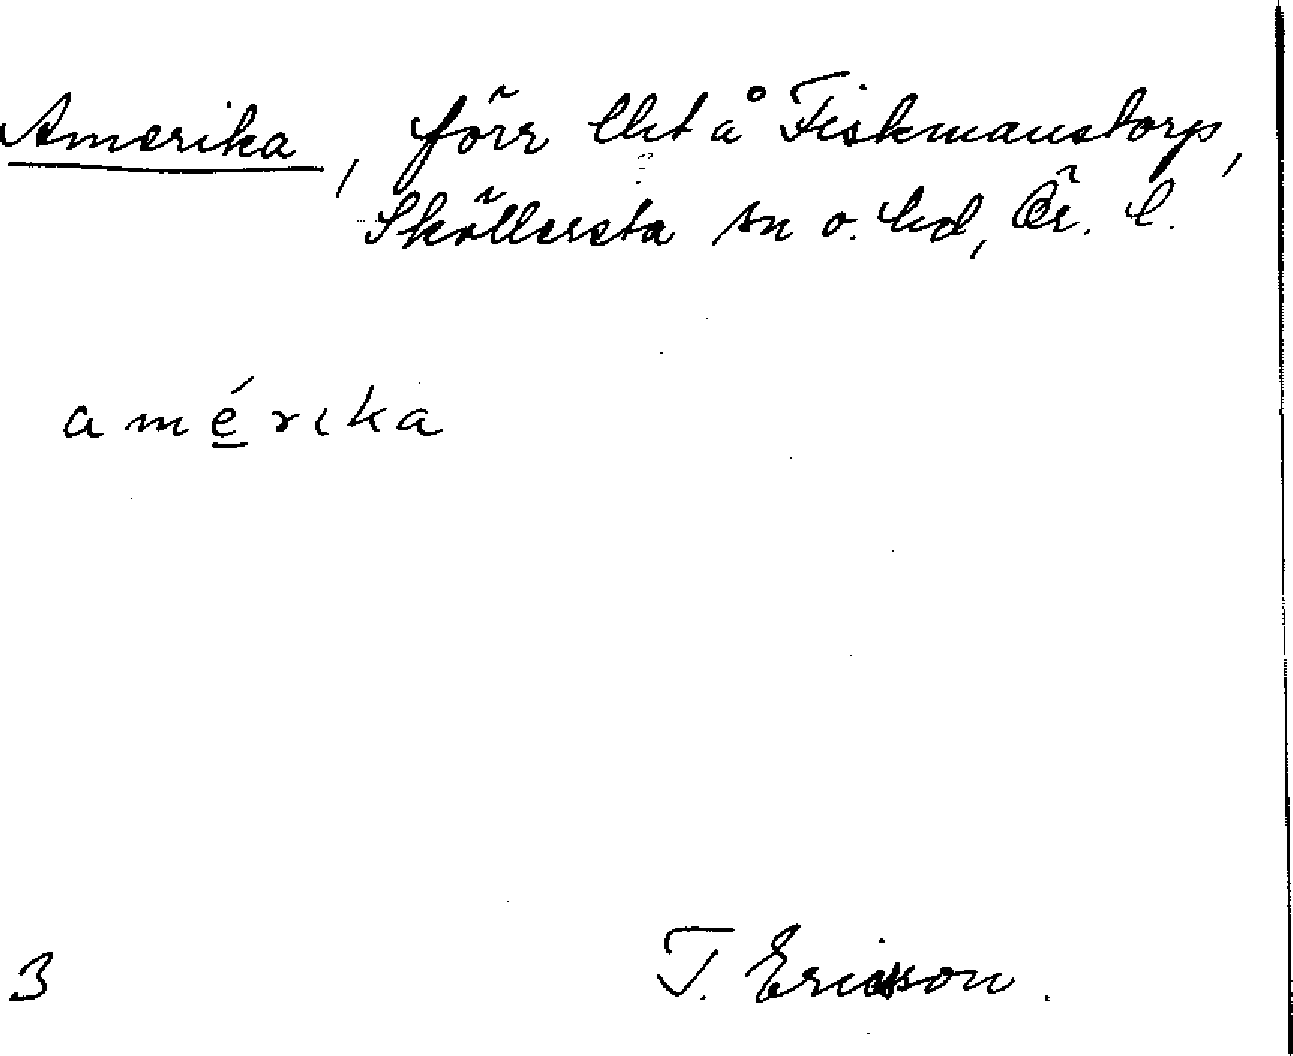 Amerika, förr lht å Fiskmanstorp,
Sköllersta sn o. hd, Ör. l.
amérika
3 T. Ericson.